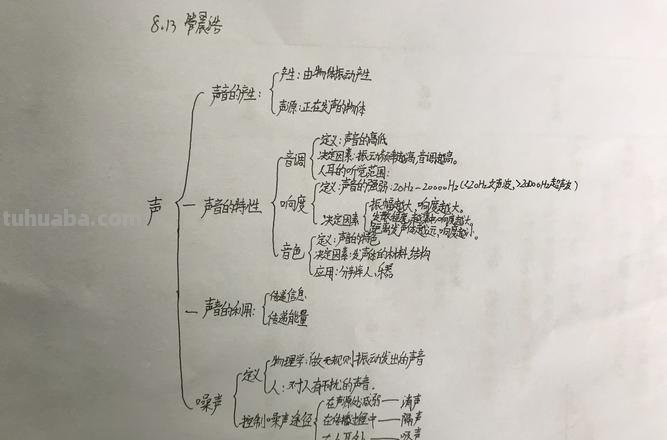 8.13 管晨浩
声
声音的产生:
产生:由物体振动产生
声源:正在发声的物体
声音的特性
音调
定义:声音的高低
决定因素:振动频率越高,音调越高。
人耳的听觉范围:
响度
定义:声音的强弱:20Hz-20000Hz(<20Hz次声波,>20000Hz超声波)
决定因素
振幅越大,响度越大。
距离发声体越远,响度越小。
音色
定义:声音的特色
决定因素:发声体的材料、结构
应用:分辨人、乐器
声音的利用:
传递信息
传递能量
噪声
定义
物理学:做无规则振动发出的声音
人:对人有干扰的声音.
控制噪声途径
在声源处减弱——消声
在传播过程中——隔声
在人耳处——吸声
tuhuaba.com